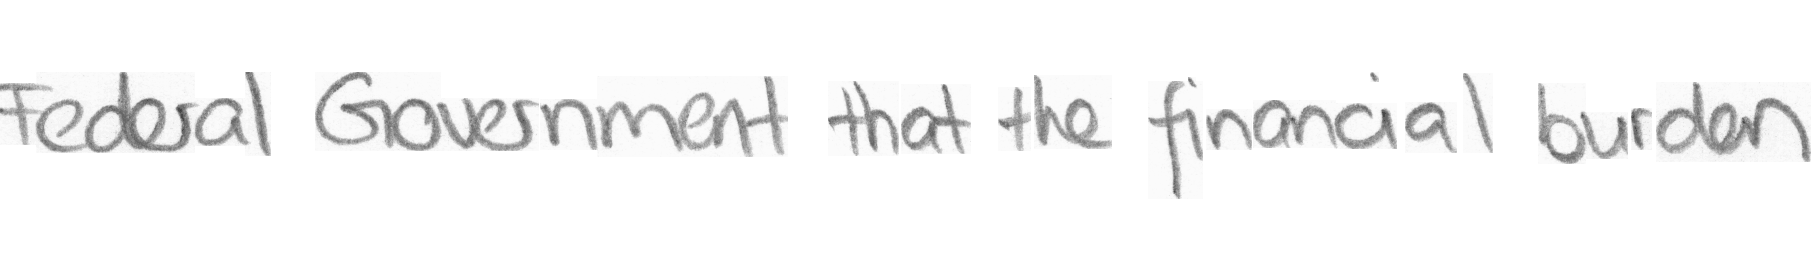 Federal Government that the financial burden